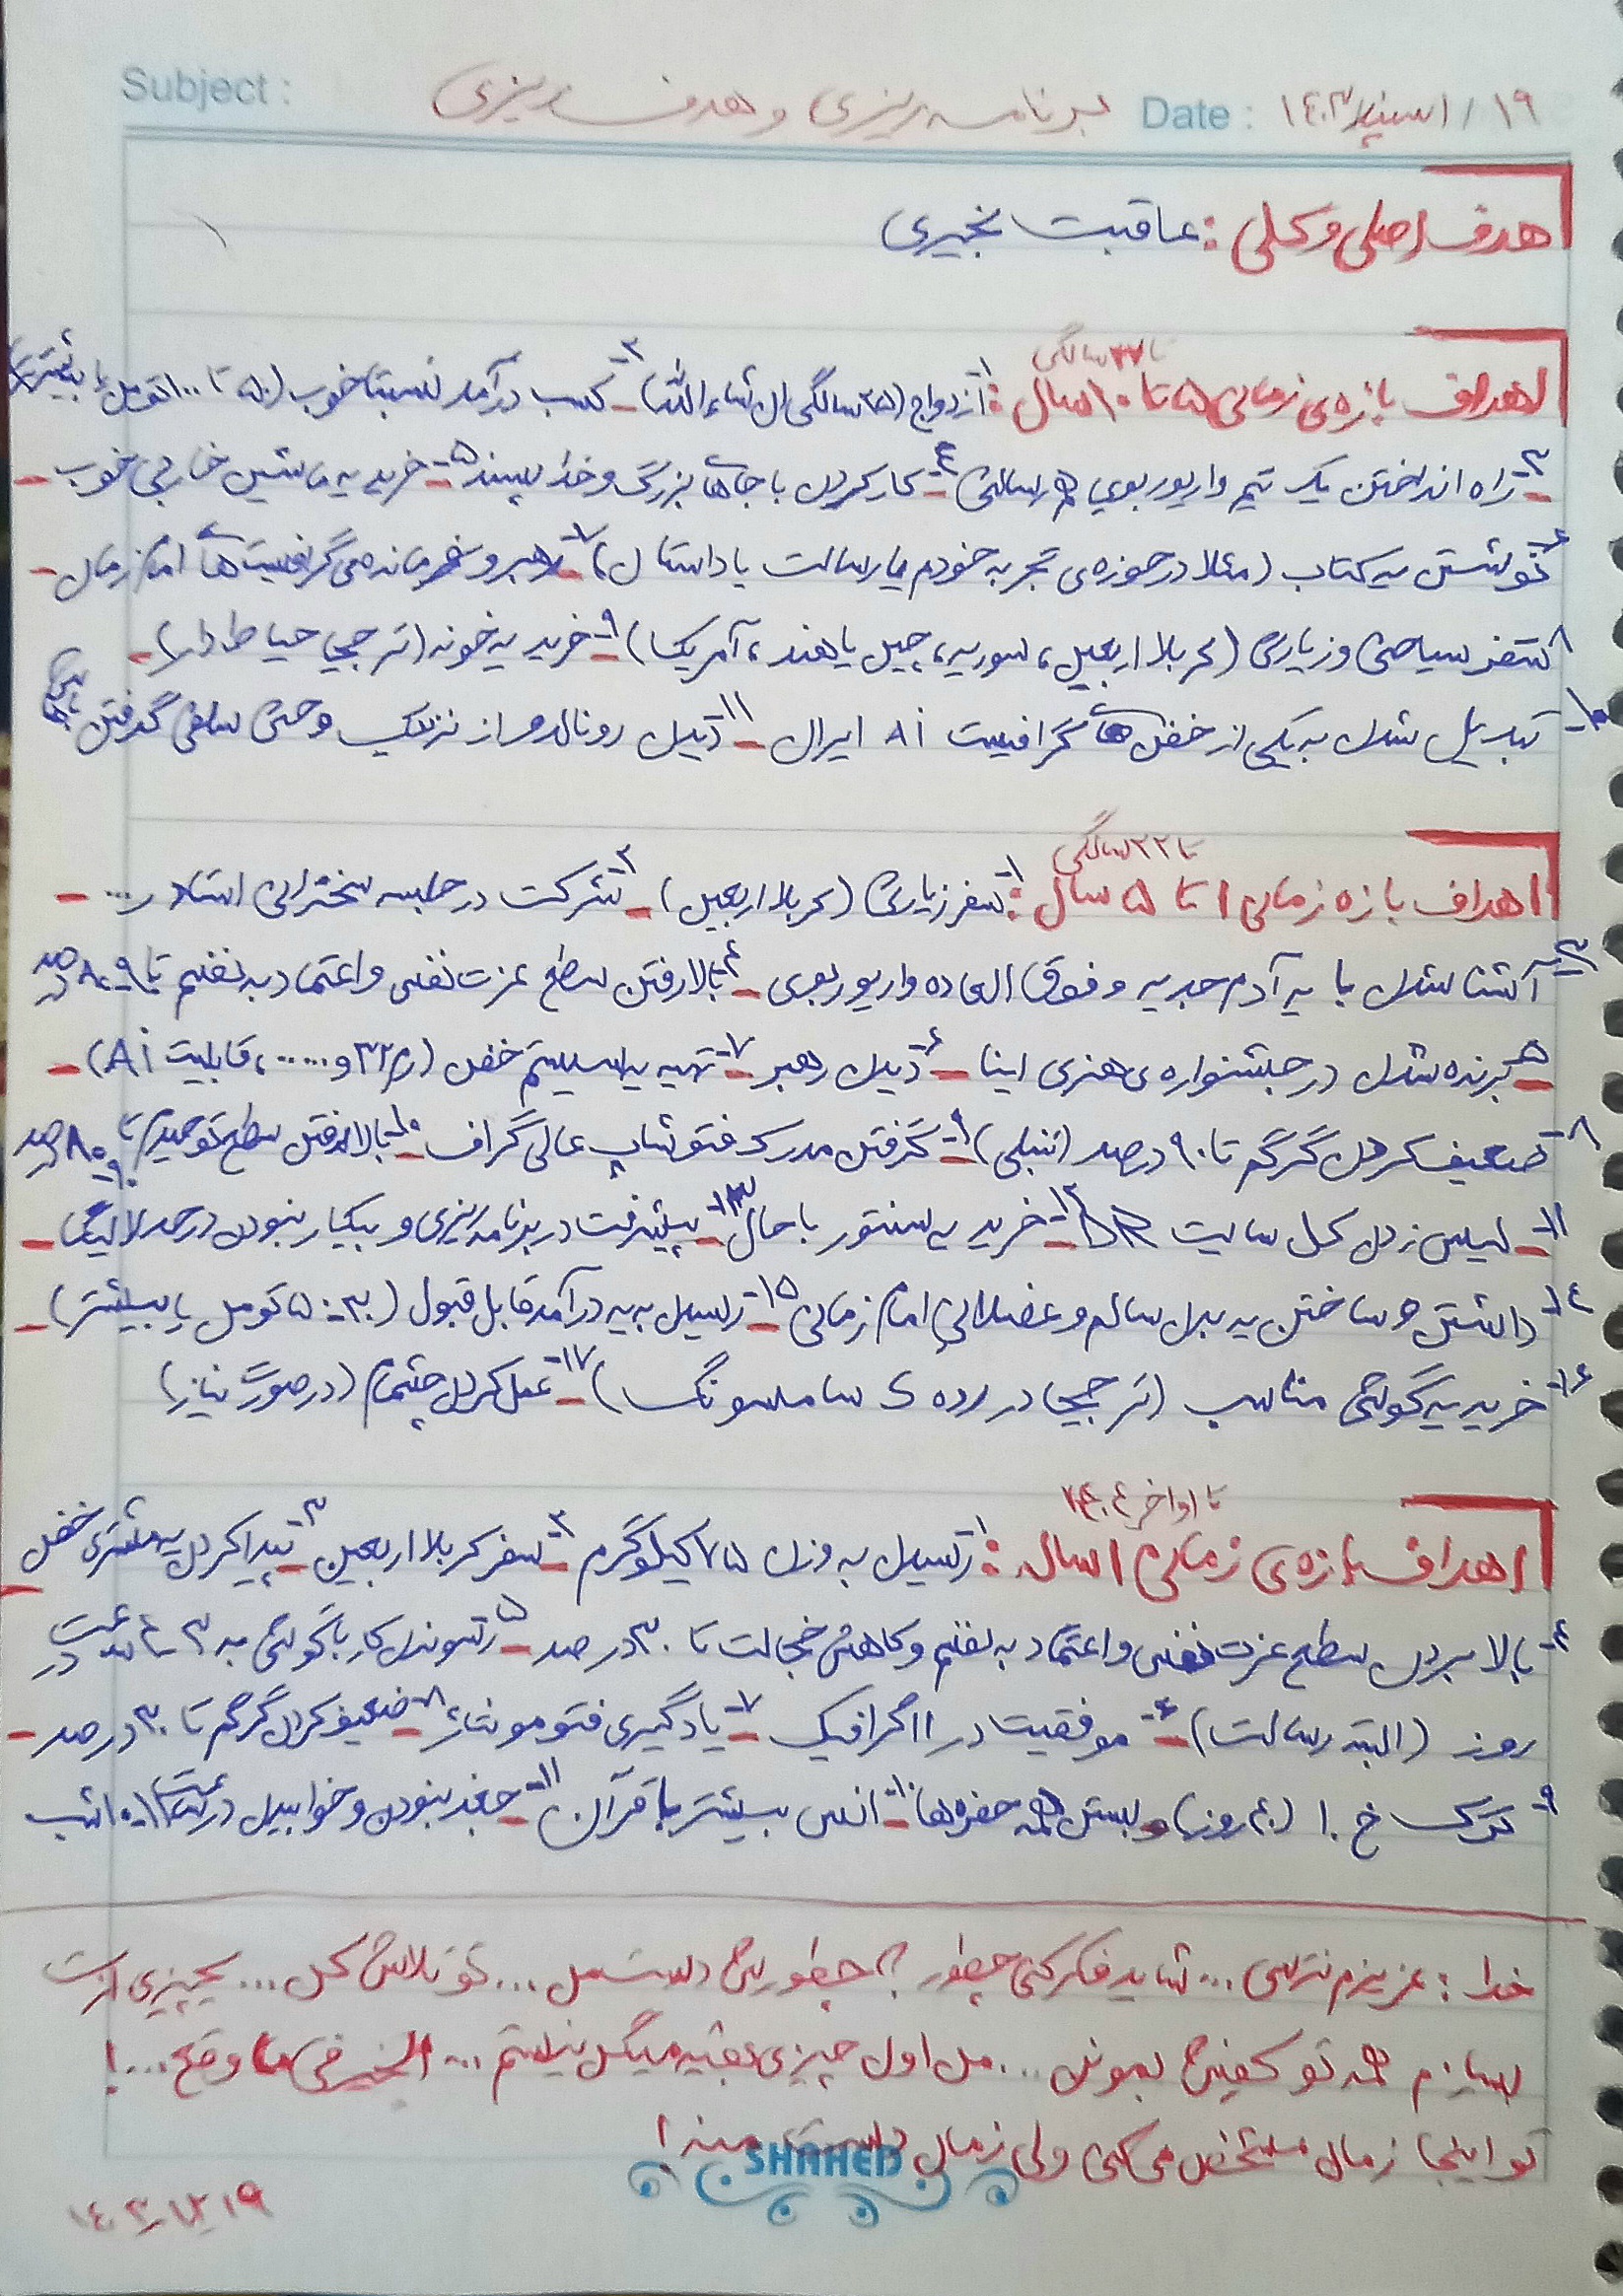 Subject : برنامه ریزی و هدف ریزی Date : ۱۹ / اسفند ۱۴۰۳
هدف اصلی و کلی : عاقبت بخیری
تا ۳۷ سالگی
اهداف بازه‌ی زمانی ۵ تا ۱۰ سال : ۱- ازدواج (۲۵ سالگی ان شاء الله) - ۲- کسب درآمد نسبتا خوب (۵۰ تا ۱۰۰ تومن یا بیشتر)
۳- راه انداختن یک تیم واریور بوی هم رسالتی ۴- کار کردن با جاهای بزرگ و خدا پسند ۵- خرید یه ماشین خارجی خوب -
۶- نوشتن یه کتاب (مثلا در حوزه‌ی تجربه خودم یا رسالت یا داستان) ۷- رهبر و فرمانده‌ی گرافیست های امام زمان -
۸- سفر سیاحتی و زیارتی (کربلا اربعین، سوریه، چین یا هند، آمریکا) ۹- خرید یه خونه (ترجیحا حیاط دار) -
۱۰- تبدیل شدن به یکی از خفن های گرافیست Ai ایران - ۱۱- دیدن رونالدو از نزدیک و حتی سلفی گرفتن باهاش
تا ۳۲ سالگی
اهداف بازه زمانی ۱ تا ۵ سال : ۱- سفر زیارتی (کربلا اربعین) - ۲- شرکت در جلسه سخنرانی استاد ر... -
۳- آشنا شدن با یه آدم جدید و فوق العاده واریور بوی - ۴- بالا رفتن سطح عزت نفس و اعتماد به نفسم تا ۸۰ - ۹۰ درصد
۵- برنده شدن در جشنواره‌ی هنری اینا - ۶- دیدن رهبر - ۷- تهیه یه سیستم خفن (رم ۳۲ و .....، قابلیت Ai) -
۸- ضعیف کردن گرگم تا ۹۰ درصد (تنبلی) ۹- گرفتن مدرک فتوشاپ عالی گراف ۱۰- بالا رفتن سطح توحیدم تا ۸۰ - ۹۰ درصد
۱۱- لیس زدن کل سایت DR ۱۲- خرید یه سنتور باحال ۱۳- پیشرفت در برنامه ریزی و بیکار نبودن در حد لالیگا -
۱۴- داشتن و ساختن یه بدن سالم و عضلانی امام زمانی ۱۵- رسیدن به یه درآمد قابل قبول (۳۰ - ۵۰ تومن یا بیشتر) -
۱۶- خرید یه گوشی مناسب (ترجیحا در رده S سامسونگ) ۱۷- عمل کردن چشمام (در صورت نیاز)
تا اواخر ۱۴۰۴
اهداف بازه‌ی زمانی ۱ ساله : ۱- رسیدن به وزن ۷۵ کیلوگرم ۲- سفر کربلا اربعین ۳- پیدا کردن یه مشتری خفن
۴- بالا بردن سطح عزت نفس و اعتماد به نفسم و کاهش خجالت تا ۳۰ درصد - ۵- رسوندن کار با گوشی به ۳ - ۴ ساعت در
روز (البته رسالت) - ۶- موفقیت در گرافیک ۷- یادگیری فتومونتاژ ۸- ضعیف کردن گرگم تا ۳۰ درصد -
۹- ترک خ.ا (۴۰ روز) و بستن همه حفره ها ۱۰- انس بیشتر با قرآن ۱۱- جغد نبودن و خوابیدن در ساعت ۱۰ شب
خدا : عزیزم نترس ... شاید فکر کنی چطور ؟ چطورش دست من ... تو تلاش کن ... یچیزی ازت
بسازم همه تو کفش بمونن ... من اول چیزی بقیه میگن نیستم ... الخیر فی ما وقع ... !
تو اینجا زمان مشخص می کنی ولی زمان دست منه !
SHAHED
۱۴۰۳